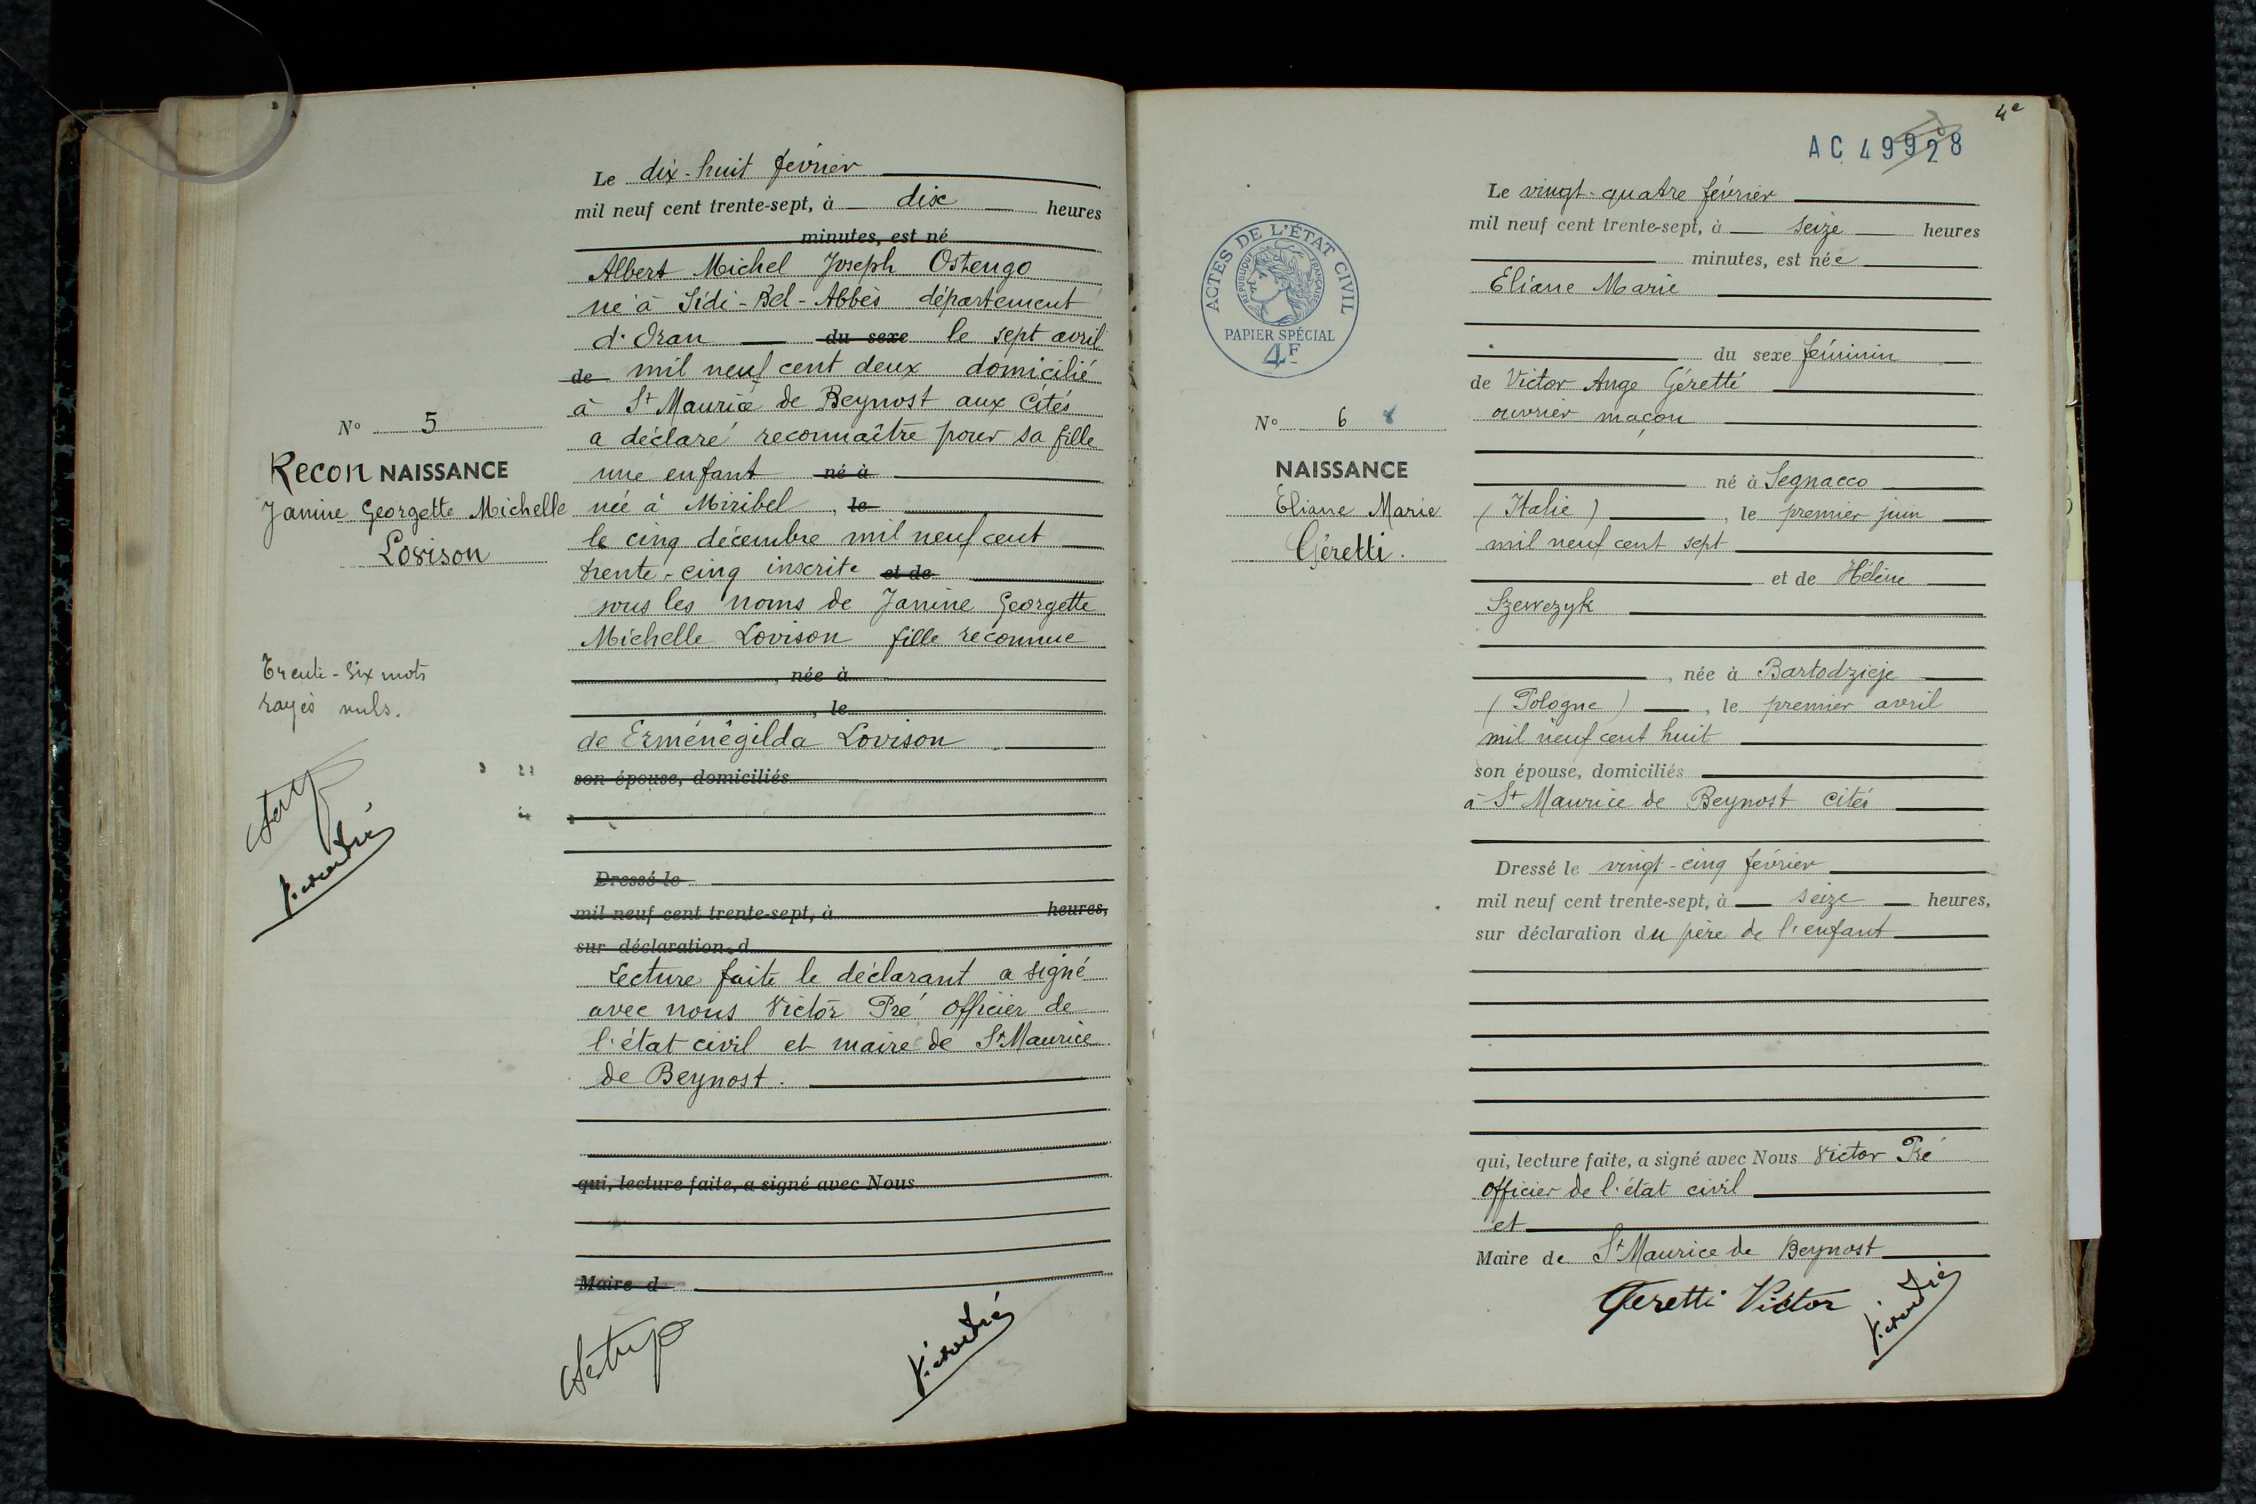 Le dix-huit février
mil neuf cent trente-sept, à dix heures
minutes, est né
Albert Michel Joseph Ostengo
né à Sidi-Bel-Abbès département
d'Oran du sexe le sept avril
de mil neuf cent deux domicilié
à St Maurice de Beynost aux Cités
a déclaré reconnaître pour sa fille
une enfant né à
née à Miribel, le
le cinq décembre mil neuf cent
trente-cinq inscrite et de
sous les noms de Janine Georgette
Michelle Lovison fille reconnue
, née à
, le
de Erménégilda Lovison
son épouse, domiciliés
Dressé le
mil neuf cent trente-sept, à heures,
sur déclaration d
Lecture faite le déclarant a signé
avec nous Victor Pré Officier de
l'état civil et maire de St Maurice
de Beynost.
qui, lecture faite, a signé avec Nous
Maire d
N° 5
Recon NAISSANCE
Janine Georgette Michelle
Lovison
Trente-six mots
rayés nuls.
4e
AC 49928
Le vingt-quatre février
mil neuf cent trente-sept, à seize heures
minutes, est née
Eliane Marie
du sexe féminin
de Victor Ange Géretti
ouvrier maçon
né à Segnacco
(Italie), le premier juin
mil neuf cent sept
et de Hélène
Szewczyk
, née à Bartodzieje
(Pologne), le premier avril
mil neuf cent huit
son épouse, domiciliés
à St Maurice de Beynost cités
Dressé le vingt-cinq février
mil neuf cent trente-sept, à seize heures,
sur déclaration du père de l'enfant
qui, lecture faite, a signé avec Nous Victor Pré
Officier de l'état civil
et
Maire de St Maurice de Beynost
Geretti Victor
ACTES DE L'ÉTAT CIVIL
RÉPUBLIQUE FRANÇAISE
PAPIER SPÉCIAL
4F
N° 6 8
NAISSANCE
Eliane Marie
Géretti.